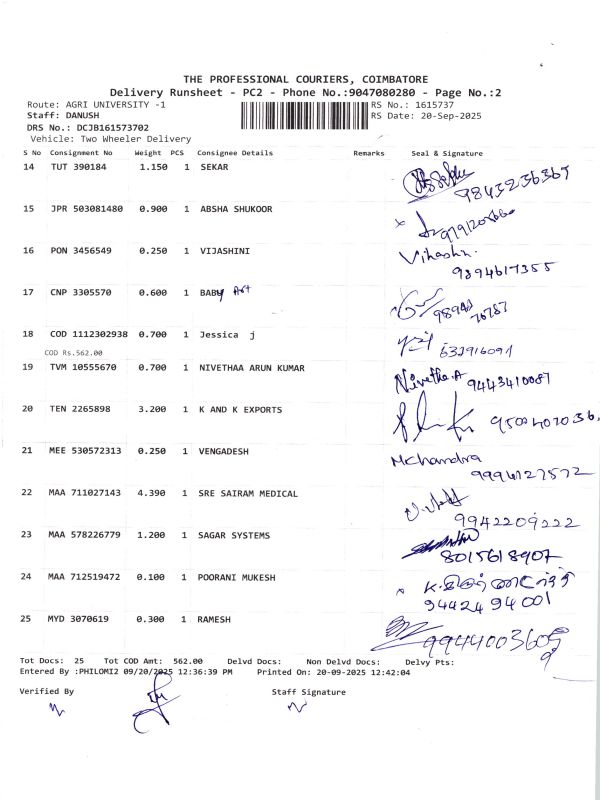 THE PROFESSIONAL COURIERS, COIMBATORE
Delivery Runsheet - PC2 - Phone No.:9047080280 - Page No.:2
Route: AGRI UNIVERSITY -1 RS No.: 1615737
Staff: DANUSH RS Date: 20-Sep-2025
DRS No.: DCJB161573702
Vehicle: Two Wheeler Delivery
S No Consignment No Weight PCS Consignee Details Remarks Seal & Signature
14 TUT 390184 1.150 1 SEKAR
9843236367
15 JPR 503081480 0.900 1 ABSHA SHUKOOR
16 PON 3456549 0.250 1 VIJASHINI
9894617355
17 CNP 3305570 0.600 1 BABY Art
18 COD 1112302938 0.700 1 Jessica j
COD Rs.562.00
632916091
19 TVM 10555670 0.700 1 NIVETHAA ARUN KUMAR
Nivetha.A 9443410087
20 TEN 2265898 3.200 1 K AND K EXPORTS
21 MEE 530572313 0.250 1 VENGADESH
MChandra
9994127572
22 MAA 711027143 4.390 1 SRE SAIRAM MEDICAL
9942209222
23 MAA 578226779 1.200 1 SAGAR SYSTEMS
8015618907
24 MAA 712519472 0.100 1 POORANI MUKESH
94424 94001
25 MYD 3070619 0.300 1 RAMESH
9944003609
Tot Docs: 25 Tot COD Amt: 562.00 Delvd Docs: Non Delvd Docs: Delvy Pts:
Entered By :PHILOMI2 09/20/2025 12:36:39 PM Printed On: 20-09-2025 12:42:04
Verified By Staff Signature